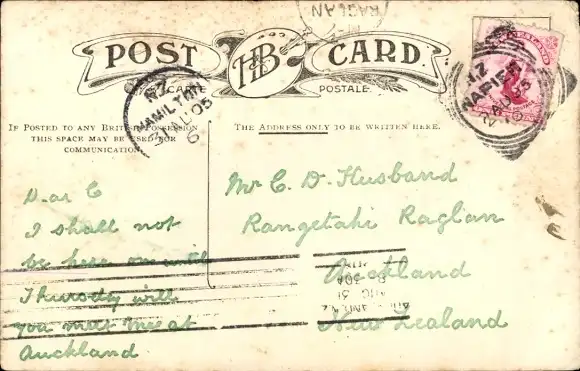 RAGLAN
POST HB CARD.
CARTE POSTALE
N.Z.
HAMILTON
AU 05
6
N.Z.
NAPIER
AU 05
ZEALAND
IF POSTED TO ANY BRITISH POSSESSION
THIS SPACE MAY BE USED FOR
COMMUNICATION.
THE ADDRESS ONLY TO BE WRITTEN HERE.
Dear C
I shall not
be here until
Thursday will
you meet me at
Auckland
Mr C. D. Husband
Rangetahi Raglan
Auckland
New Zealand
8 30A
AUG 31
AUCKLAND N.Z.